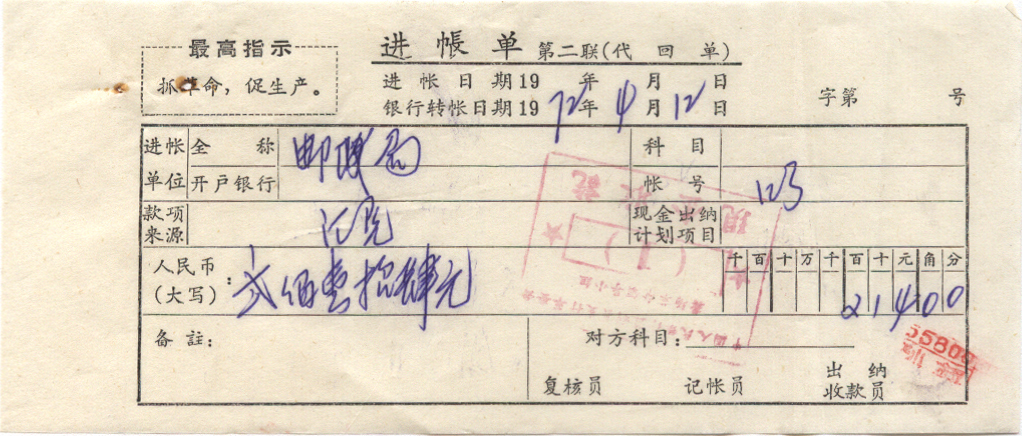 最高指示
抓革命，促生产。
进帐单 第二联(代回单)
进帐日期19 年 月 日
银行转帐日期1972年4月12日
字第 号
进帐单位 全称 邮政局 科目
开户银行 帐号 123
款项来源 现金出纳计划项目
人民币(大写)：贰佰壹拾肆元 千百十万千百十元角分
21400
备註： 对方科目：
复核员 记帐员 出纳收款员
55808